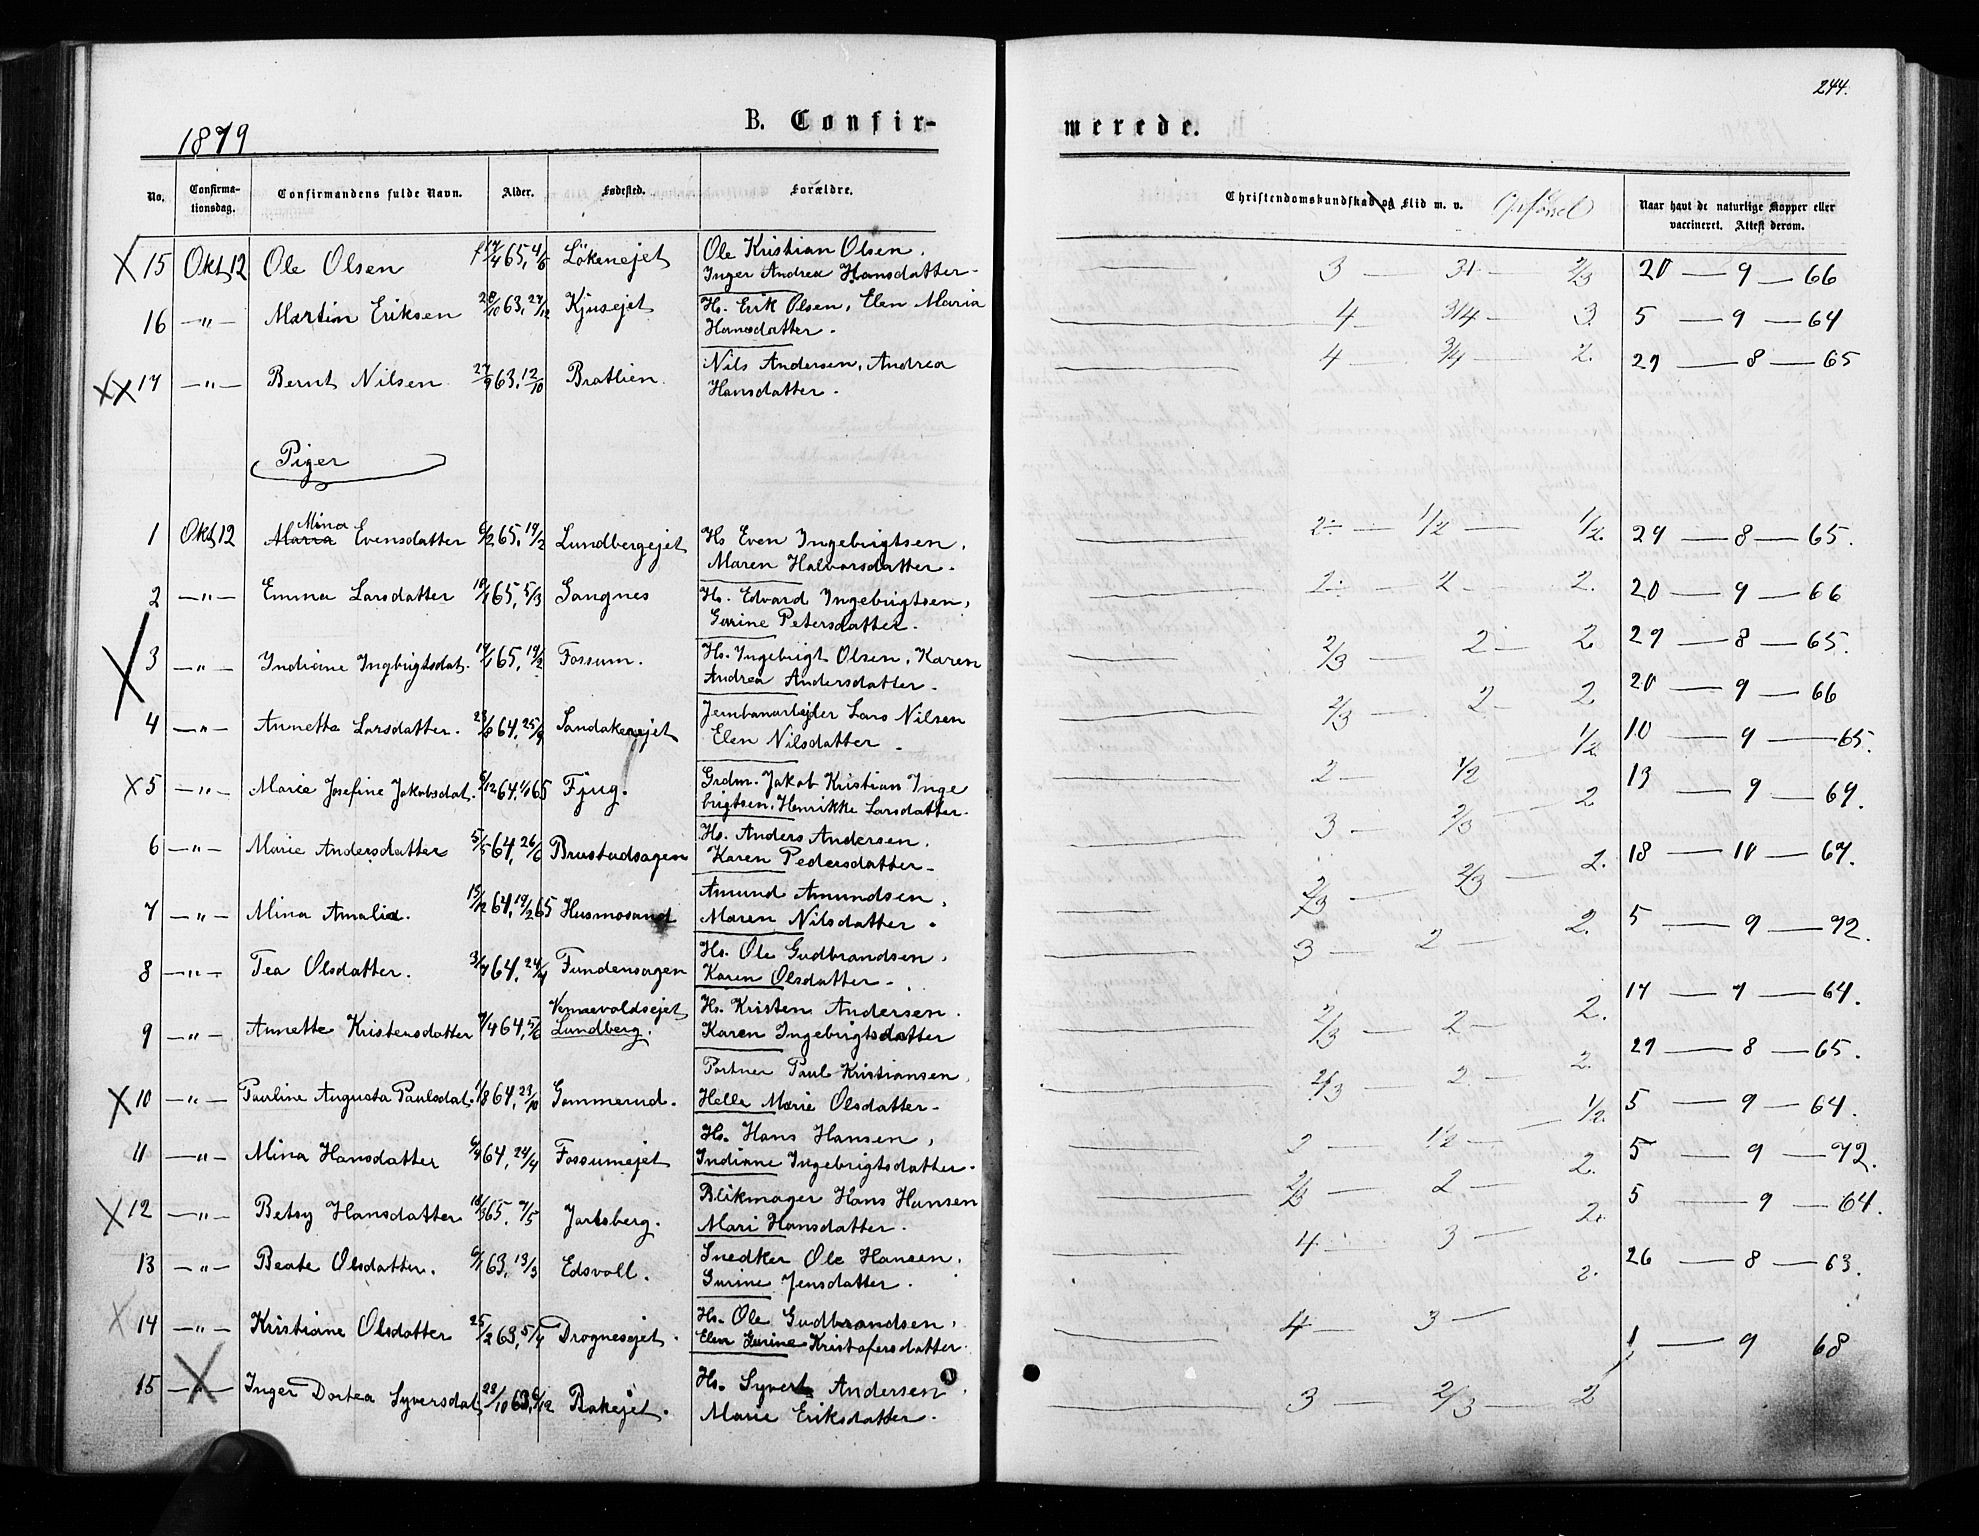 244.
1879
B. Confir-
merede.
No.
Confirma-
tionsdag.
Confirmandens fulde Navn.
Alder.
Fødested.
Forældre.
Christendomskundskab og Flid m. v. Opførsel
Naar havt de naturlige Kopper eller
vaccineret. Attest derom.
15 Okt 12 Ole Olsen 65, Lökenejet Ole Kristian Olsen. 3 — — 2/3 20 — 9 — 66
Inger Andrea Hansdatter.
16 —"— Martin Eriksen 28/10 63, 27/12 Kjusejet Hs. Erik Olsen, Elen Maria 4 — 3/4 — 3. 5 — 9 — 64
Hansdatter.
17 —"— Bernt Nilsen 27/9 63, 12/10 Bratlien. Nils Andersen, Andrea 4 — 3/4 — 2. 29 — 8 — 65
Hansdatter.
Piger
1 Okt 12 Maria Mina Evensdatter 6/2 65, 19/2 Lundbergejet Hs Even Ingebrigtsen, 2 — 1/2 — 1/2. 29 — 8 — 65.
Maren Halvorsdatter.
2 —"— Emma Larsdatter 65, 5/3 Gangnes Hs. Edvard Ingebrigtsen, 2 — 2 — 2. 20 — 9 — 66
Gurine Petersdatter.
3 —"— Indiane Ingbrigtsdat. 65, 19/2 Fossum. Hs. Ingebrigt Olsen, Karen 2/3 — 2 — 2 29 — 8 — 65.
Andrea Andersdatter.
4 —"— Annette Larsdatter. 64, 25/9 Sandakerejet Jernbanarbejder Lars Nilsen 2/3 — 2 — 2 20 — 9 — 66
Elen Nilsdatter.
5 —"— Marie Josefine Jakobsdat. 6/12 64, 1/1 65 Fjug. Grdm. Jakob Kristian Inge 2 — 1/2 — 1/2 10 — 9 — 65.
brigtsen, Henrikke Larsdatter.
6 —"— Marie Andersdatter 5/5 64, 26/6 Brustadsagen Hs. Anders Andersen. 3 — 2/3 — 2 13 — 9 — 69.
Karen Pedersdatter.
7 —"— Mina Amalia. 15/12 64, 19/2 65 Husmosand Amund Amundsen, 2/3 — 2/3 — 2. 18 — 10 — 67.
Maren Nilsdatter.
8 —"— Tea Olsdatter. 64, 24/4 Fundensagen Hs. Ole Gudbrandsen, 3 — 2 — 2. 5 — 9 — 72.
Karen Olsdatter.
9 —"— Annette Kristensdatter 7/4 64, 5/6 Vennevoldsejet Hs. Kristen Andersen. 2/3 — 2 — 2. 17 — 7 — 64.
Lundberg. Karen Ingebrigtsdatter
10 —"— Pauline Augusta Paulsdat. 1/8 64, 23/10 Gommerud. Portner Paul Kristiansen, 2/3 — 2 — 2. 29 — 8 — 65.
Helle Marie Olsdatter.
11 —"— Mina Hansdatter 64, 24/4 Fossumejet Hs. Hans Hansen, 2 — 1/2 — 1/2. 5 — 9 — 64.
Indiane Ingebrigtsdatter.
12 —"— Betsy Hansdatter 18/3 65, 7/5 Jarlsberg. Blikmager Hans Hansen 2/3 — 2 — 2. 5 — 9 — 72.
Mari Hansdatter.
13 —"— Beate Olsdatter. 63, 13/3 Edsvoll. Snedker Ole Hansen, 4 — 3 — 2. 5 — 9 — 64.
Gurine Jensdatter.
14 —"— Kristiane Olsdatter 25/2 63, 5/4 Drognesejet. Hs. Ole Gudbrandsen, 4 — 3 — 2. 26 — 8 — 63.
Elen Gurine Kristofersdatter.
15 —"— Inger Dortea Syversdat. 28/10 63, 6/12 Bakejet. Hs. Syvert Andersen, 3 — 2/3 — 2 1 — 9 68
Marie Eriksdatter.